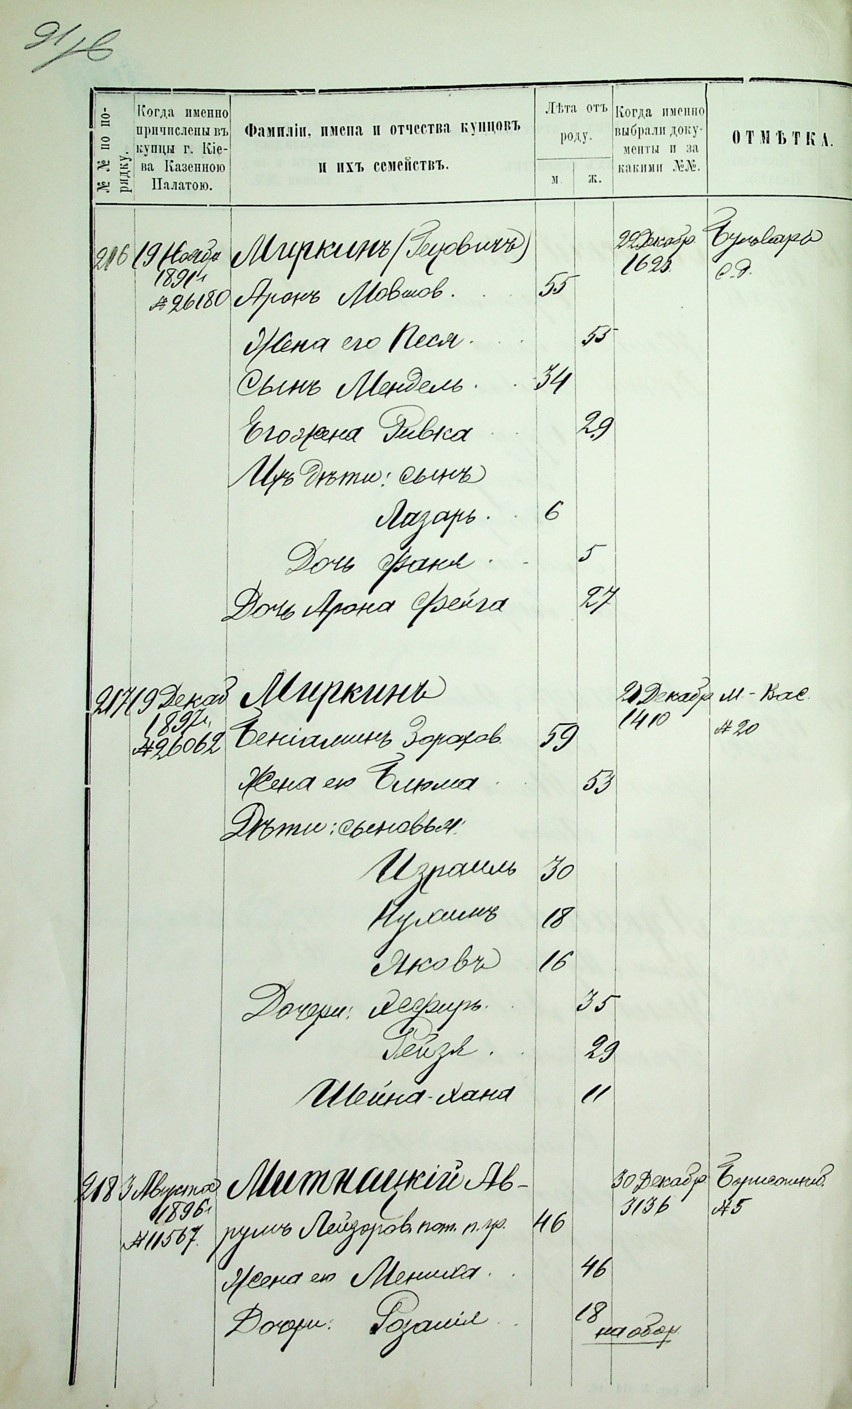 № № по по-
рядку.
Когда именно
причислены въ
купцы г. Кіе-
ва Казенною
Палатою.
Фамиліи, имена и отчества купцовъ
и ихъ семействъ.
Лѣта отъ
роду.
м. ж.
Когда именно
выбрали доку-
менты и за
какими №№.
ОТМѢТКА.
216 19 Нояб.
1891 г.
№ 26180
Миркинъ
Аронъ Мовшов. 55
22 Декабр
1623
с.д.
Жена его Песя 55
Сынъ Мендель 34
Его жена Ривка 29
Ихъ дѣти: сынъ
Лазарь 6
Дочь Фаня 5
Дочь Арона Фейга 27
217 19 Декаб
№ 26062
Миркинъ
Беніаминъ Зорохов. 59
21 Декабр
1410
М-Вас.
№ 20
Жена его Блюма 53
Дѣти: сыновья:
Израиль 30
Нухимъ 18
Яковъ 16
Дочери: 35
Рейзя 29
Шейна-Хана 11
218 3 Августа
1896 г.
№ 11567
Митницкій Ав-
румъ Лейзоров. пот. п. гр. 46
30 Декабр
3136
№ 5
Жена его 46
Дочери: Розалія 18
на обор